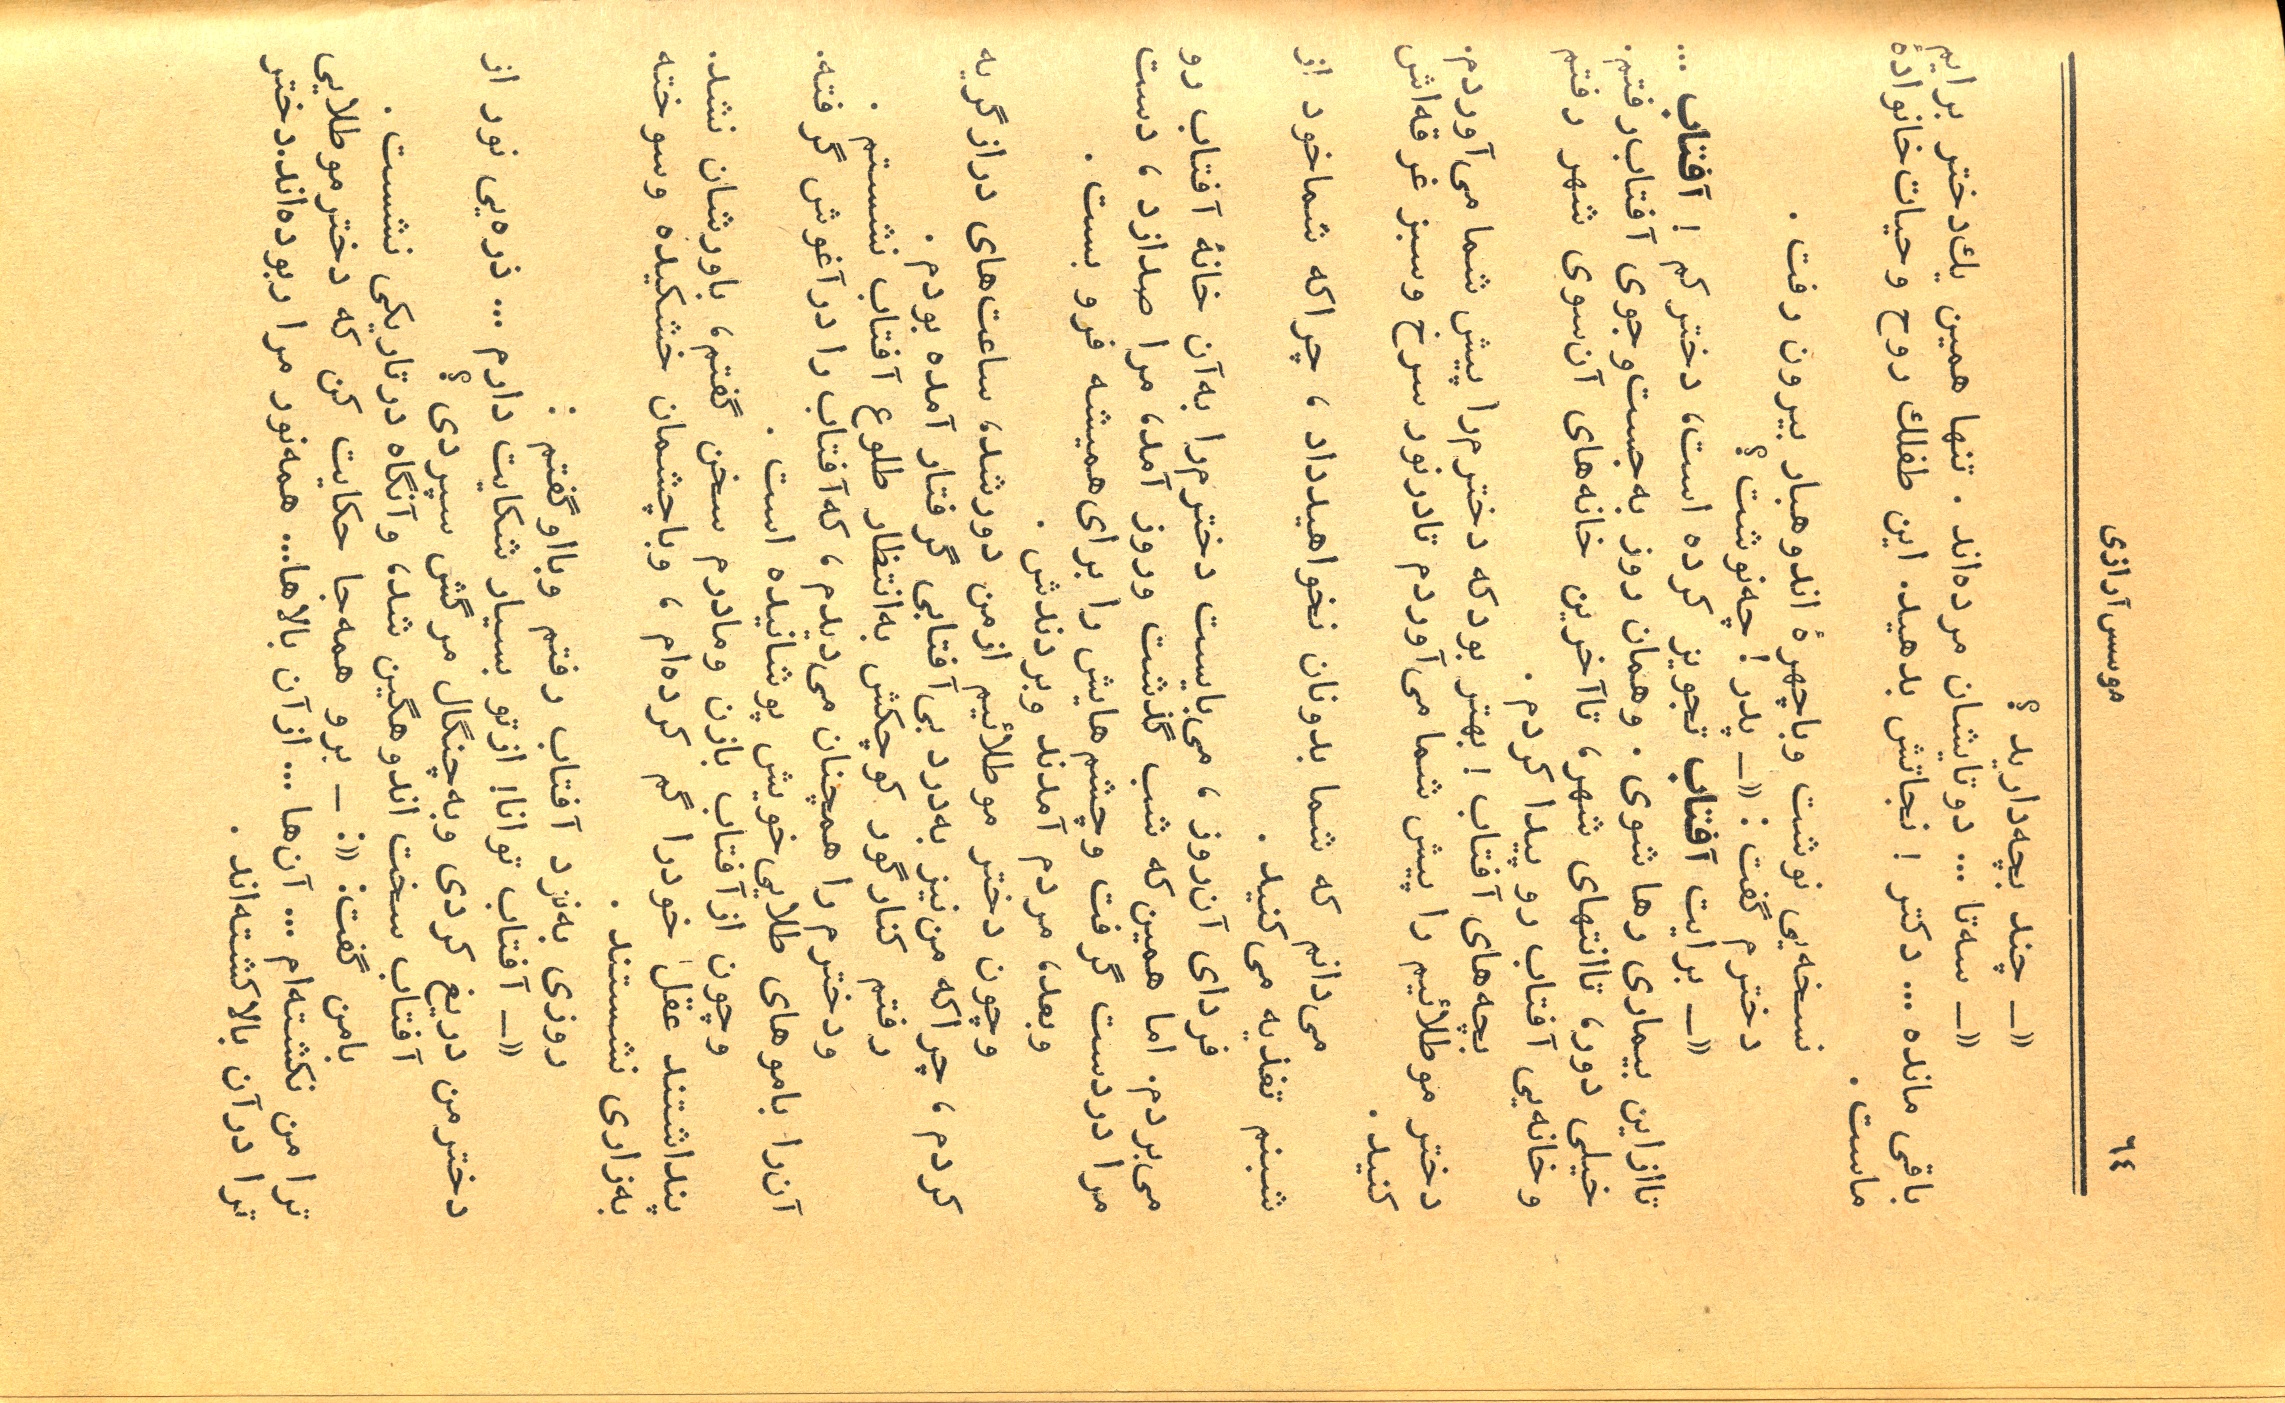 ٦٤ موسس آرازی
«ــ چند بچه‌دارید ؟
«ــ سه‌تا ... دوتایشان مرده‌اند . تنها همین یك‌دختر برایم
باقی مانده ... دکتر ! نجاتش بدهید. این طفلك روح وحیات‌خانوادهٔ
ماست .
نسخه‌یی نوشت وباچهرهٔ اندوهبار بیرون رفت .
دخترم گفت : «ــ پدر ! چه‌نوشت ؟
«ــ برایت آفتاب تجویز کرده است، دخترکم ! آفتاب ...
تاازاین بیماری رها شوی . وهمان روز به‌جست‌وجوی آفتاب‌رفتم.
خیلی دور، تاانتهای شهر، تاآخرین خانه‌های آن‌سوی شهر رفتم
وخانه‌یی آفتاب رو پیدا کردم .
بچه‌های آفتاب ! بهتر بودکه دخترم‌را پیش شما می‌آوردم.
دختر موطلائیم را پیش شما می‌آوردم تادرنور سرخ وسبز غرقه‌اش
کنید .
می‌دانم که شما بدونان نخواهیدداد ، چراکه شماخود از
شبنم تغذیه می‌کنید .
فردای آن‌روز ، می‌بایست دخترم‌را به‌آن خانهٔ آفتاب رو
می‌بردم. اما همین‌که شب گذشت وروز آمد، مرا صدازد ، دست
مرا دردست گرفت وچشم‌هایش را برای‌همیشه فرو بست .
وبعد، مردم آمدند وبردندش .
وچون دختر موطلائیم ازمن دورشد، ساعت‌های درازگریه
کردم ، چراکه من‌نیز به‌درد بی‌آفتابی گرفتار آمده بودم .
رفتم کنارگور کوچکش به‌انتظار طلوع آفتاب نشستم .
ودخترم را همچنان می‌دیدم ، که‌آفتاب را درآغوش گرفته.
آن‌را باموهای طلایی‌خویش پوشانیده است .
وچون ازآفتاب بازن ومادرم سخن گفتم، باورشان نشد.
پنداشتند عقل خودرا گم کرده‌ام ، وباچشمان خشکیده وسوخته
به‌زاری نشستند .
روزی به‌نزد آفتاب رفتم وبااوگفتم :
«ــ آفتاب توانا! ازتو بسیار شکایت دارم ... ذره‌یی نور از
دخترمن دریغ کردی وبه‌چنگال مرگش سپردی ؟
آفتاب سخت اندوهگین شد، وآنگاه درتاریکی نشست .
بامن گفت: «: ــ برو همه‌جا حکایت کن که دخترموطلایی
ترا من نکشته‌ام ... آن‌ها ... ازآن بالاها... همه‌نور مرا ربوده‌اند.دختر
ترا درآن بالاکشته‌اند .